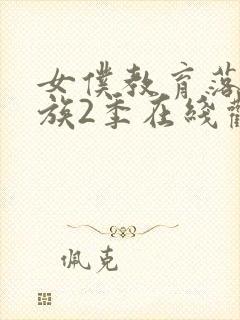 女僕教育落
族2季在綫
佩克